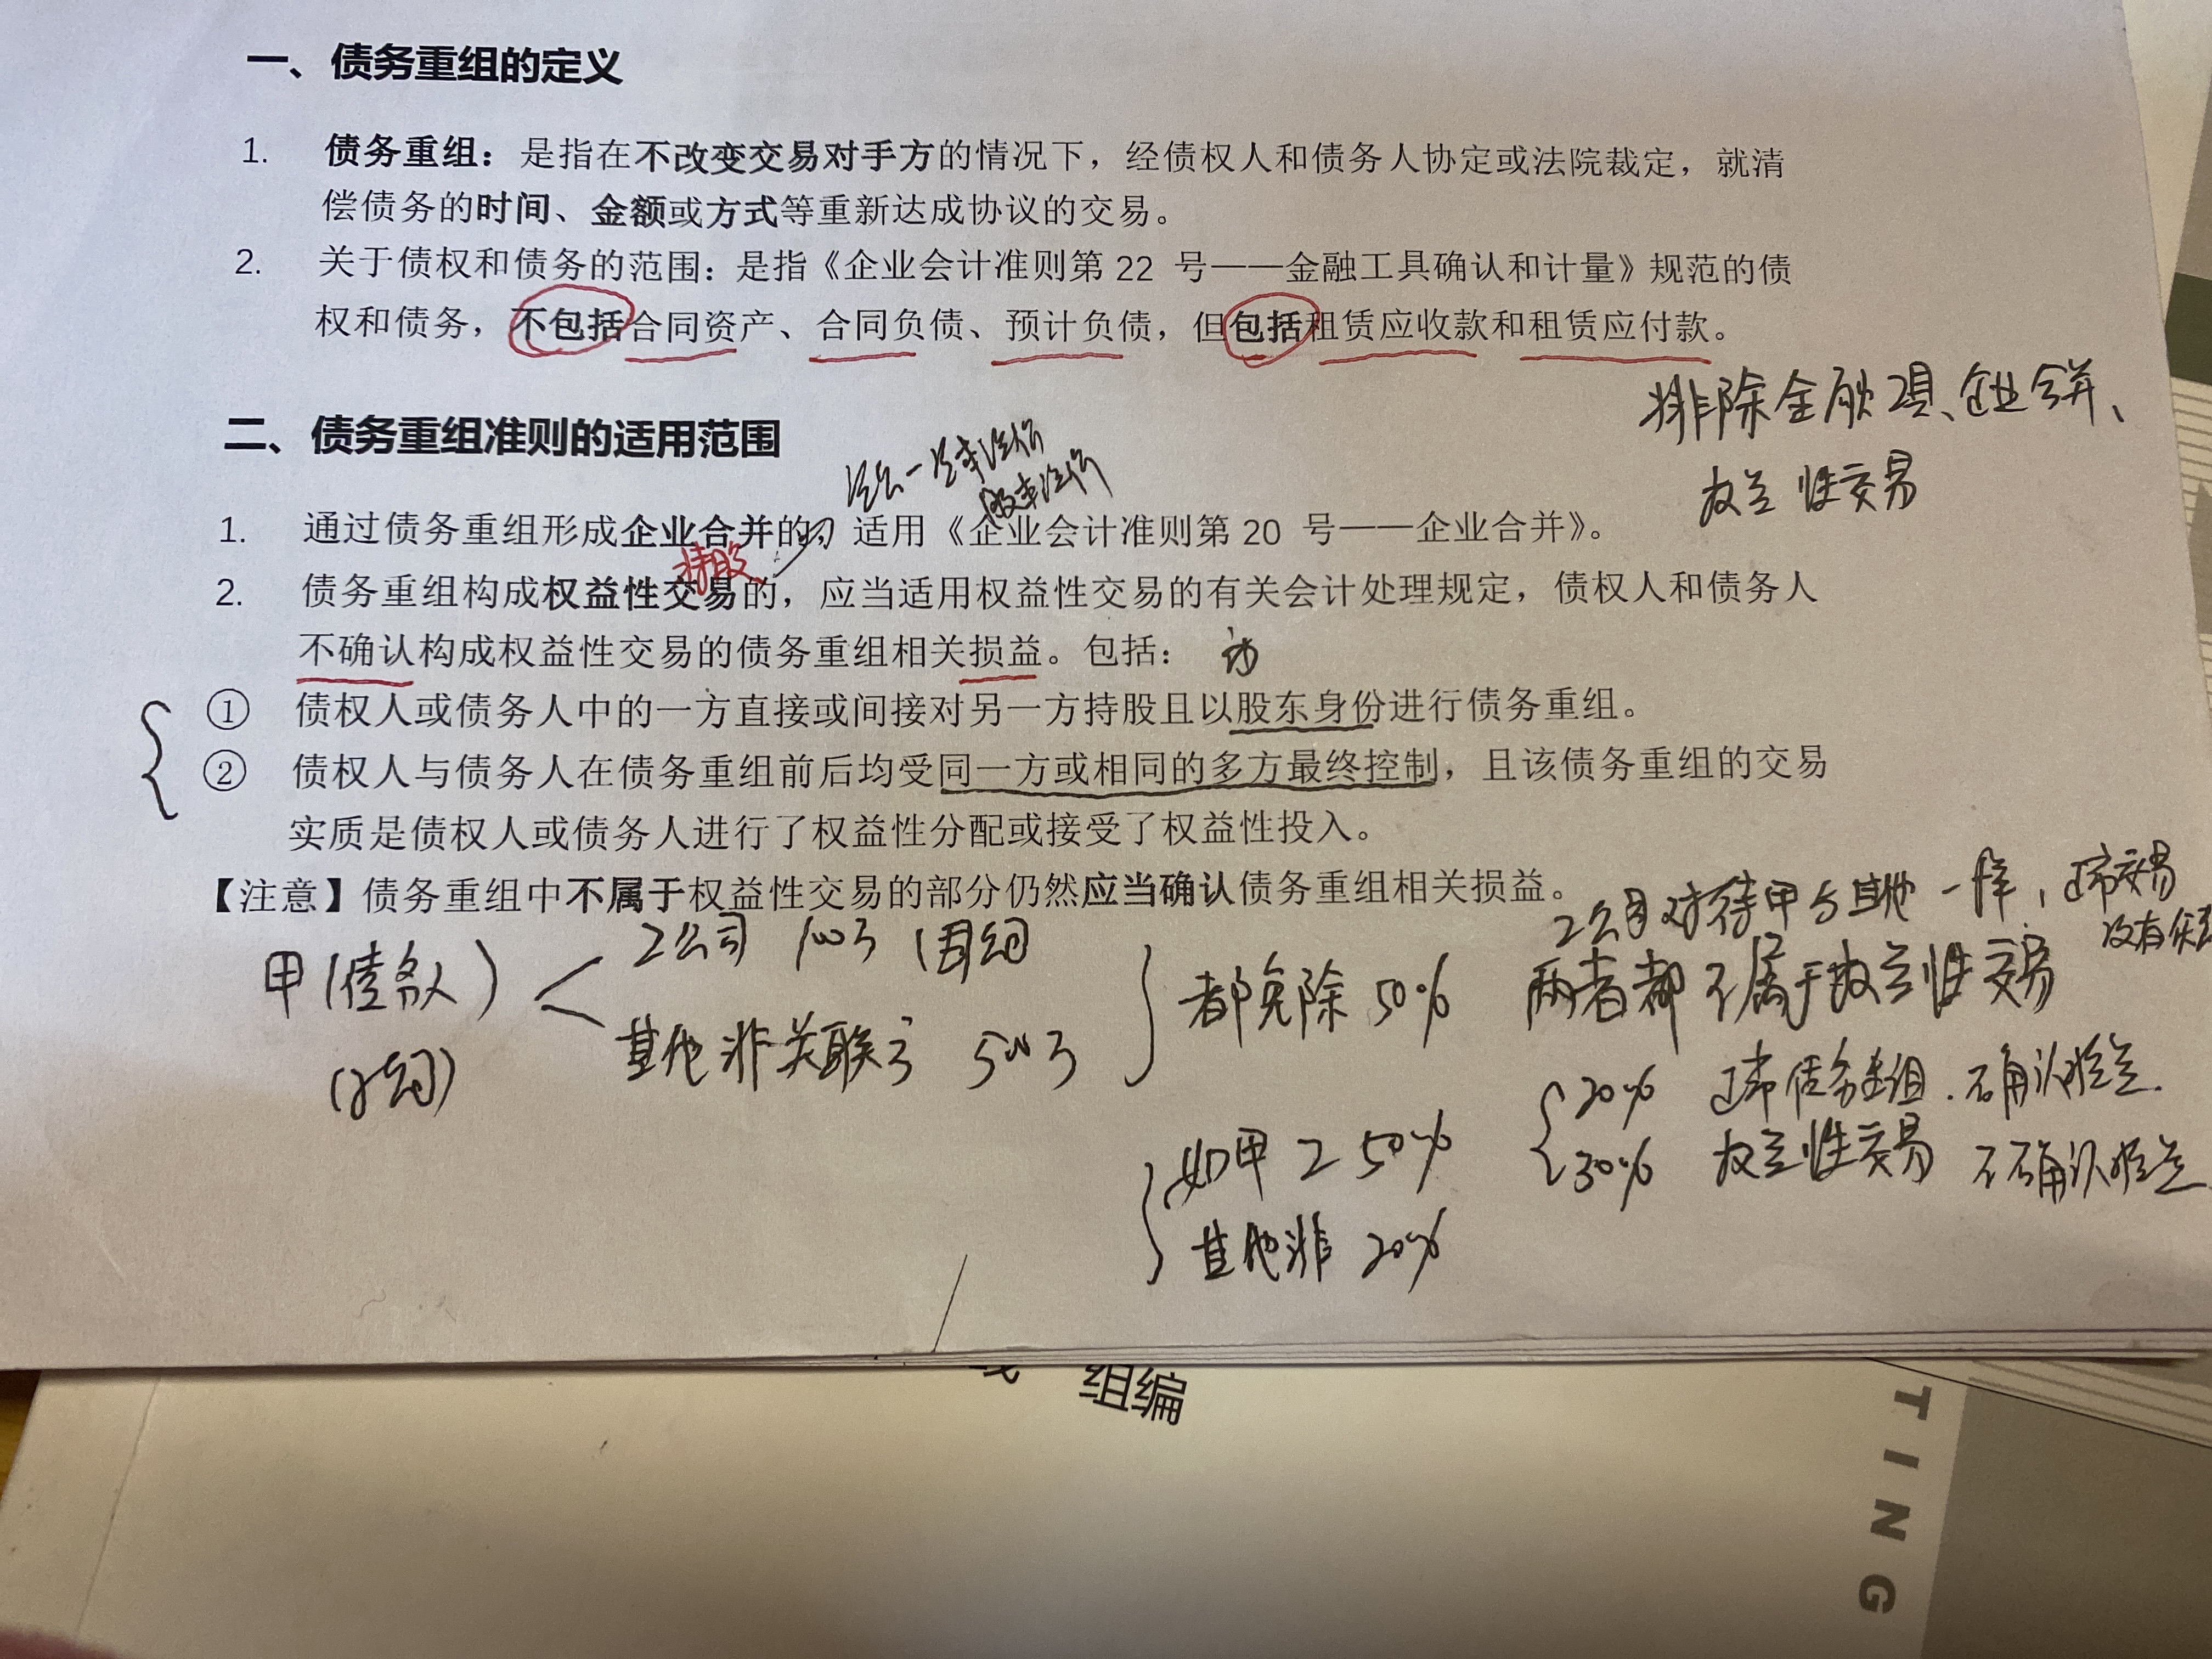 一、债务重组的定义
1. 债务重组：是指在不改变交易对手方的情况下，经债权人和债务人协定或法院裁定，就清
偿债务的时间、金额或方式等重新达成协议的交易。
2. 关于债权和债务的范围：是指《企业会计准则第 22 号——金融工具确认和计量》规范的债
权和债务，不包括合同资产、合同负债、预计负债，但包括租赁应收款和租赁应付款。
排除金融工具、企业合并、
权益性交易
二、债务重组准则的适用范围
1. 通过债务重组形成企业合并的 适用《企业会计准则第 20 号——企业合并》。
持股
2. 债务重组构成权益性交易的，应当适用权益性交易的有关会计处理规定，债权人和债务人
不确认构成权益性交易的债务重组相关损益。包括：
① 债权人或债务人中的一方直接或间接对另一方持股且以股东身份进行债务重组。
② 债权人与债务人在债务重组前后均受同一方或相同的多方最终控制，且该债务重组的交易
实质是债权人或债务人进行了权益性分配或接受了权益性投入。
【注意】债务重组中不属于权益性交易的部分仍然应当确认债务重组相关损益。
甲（债务人）
乙公司
其他非关联
都免除 50%
乙公司对待甲与其他一样，
没有
两者都不属于权益性交易
如甲 乙 50%
其他非 20%
20% 债务重组．确认损益
30% 权益性交易 不确认损益
组编
TING